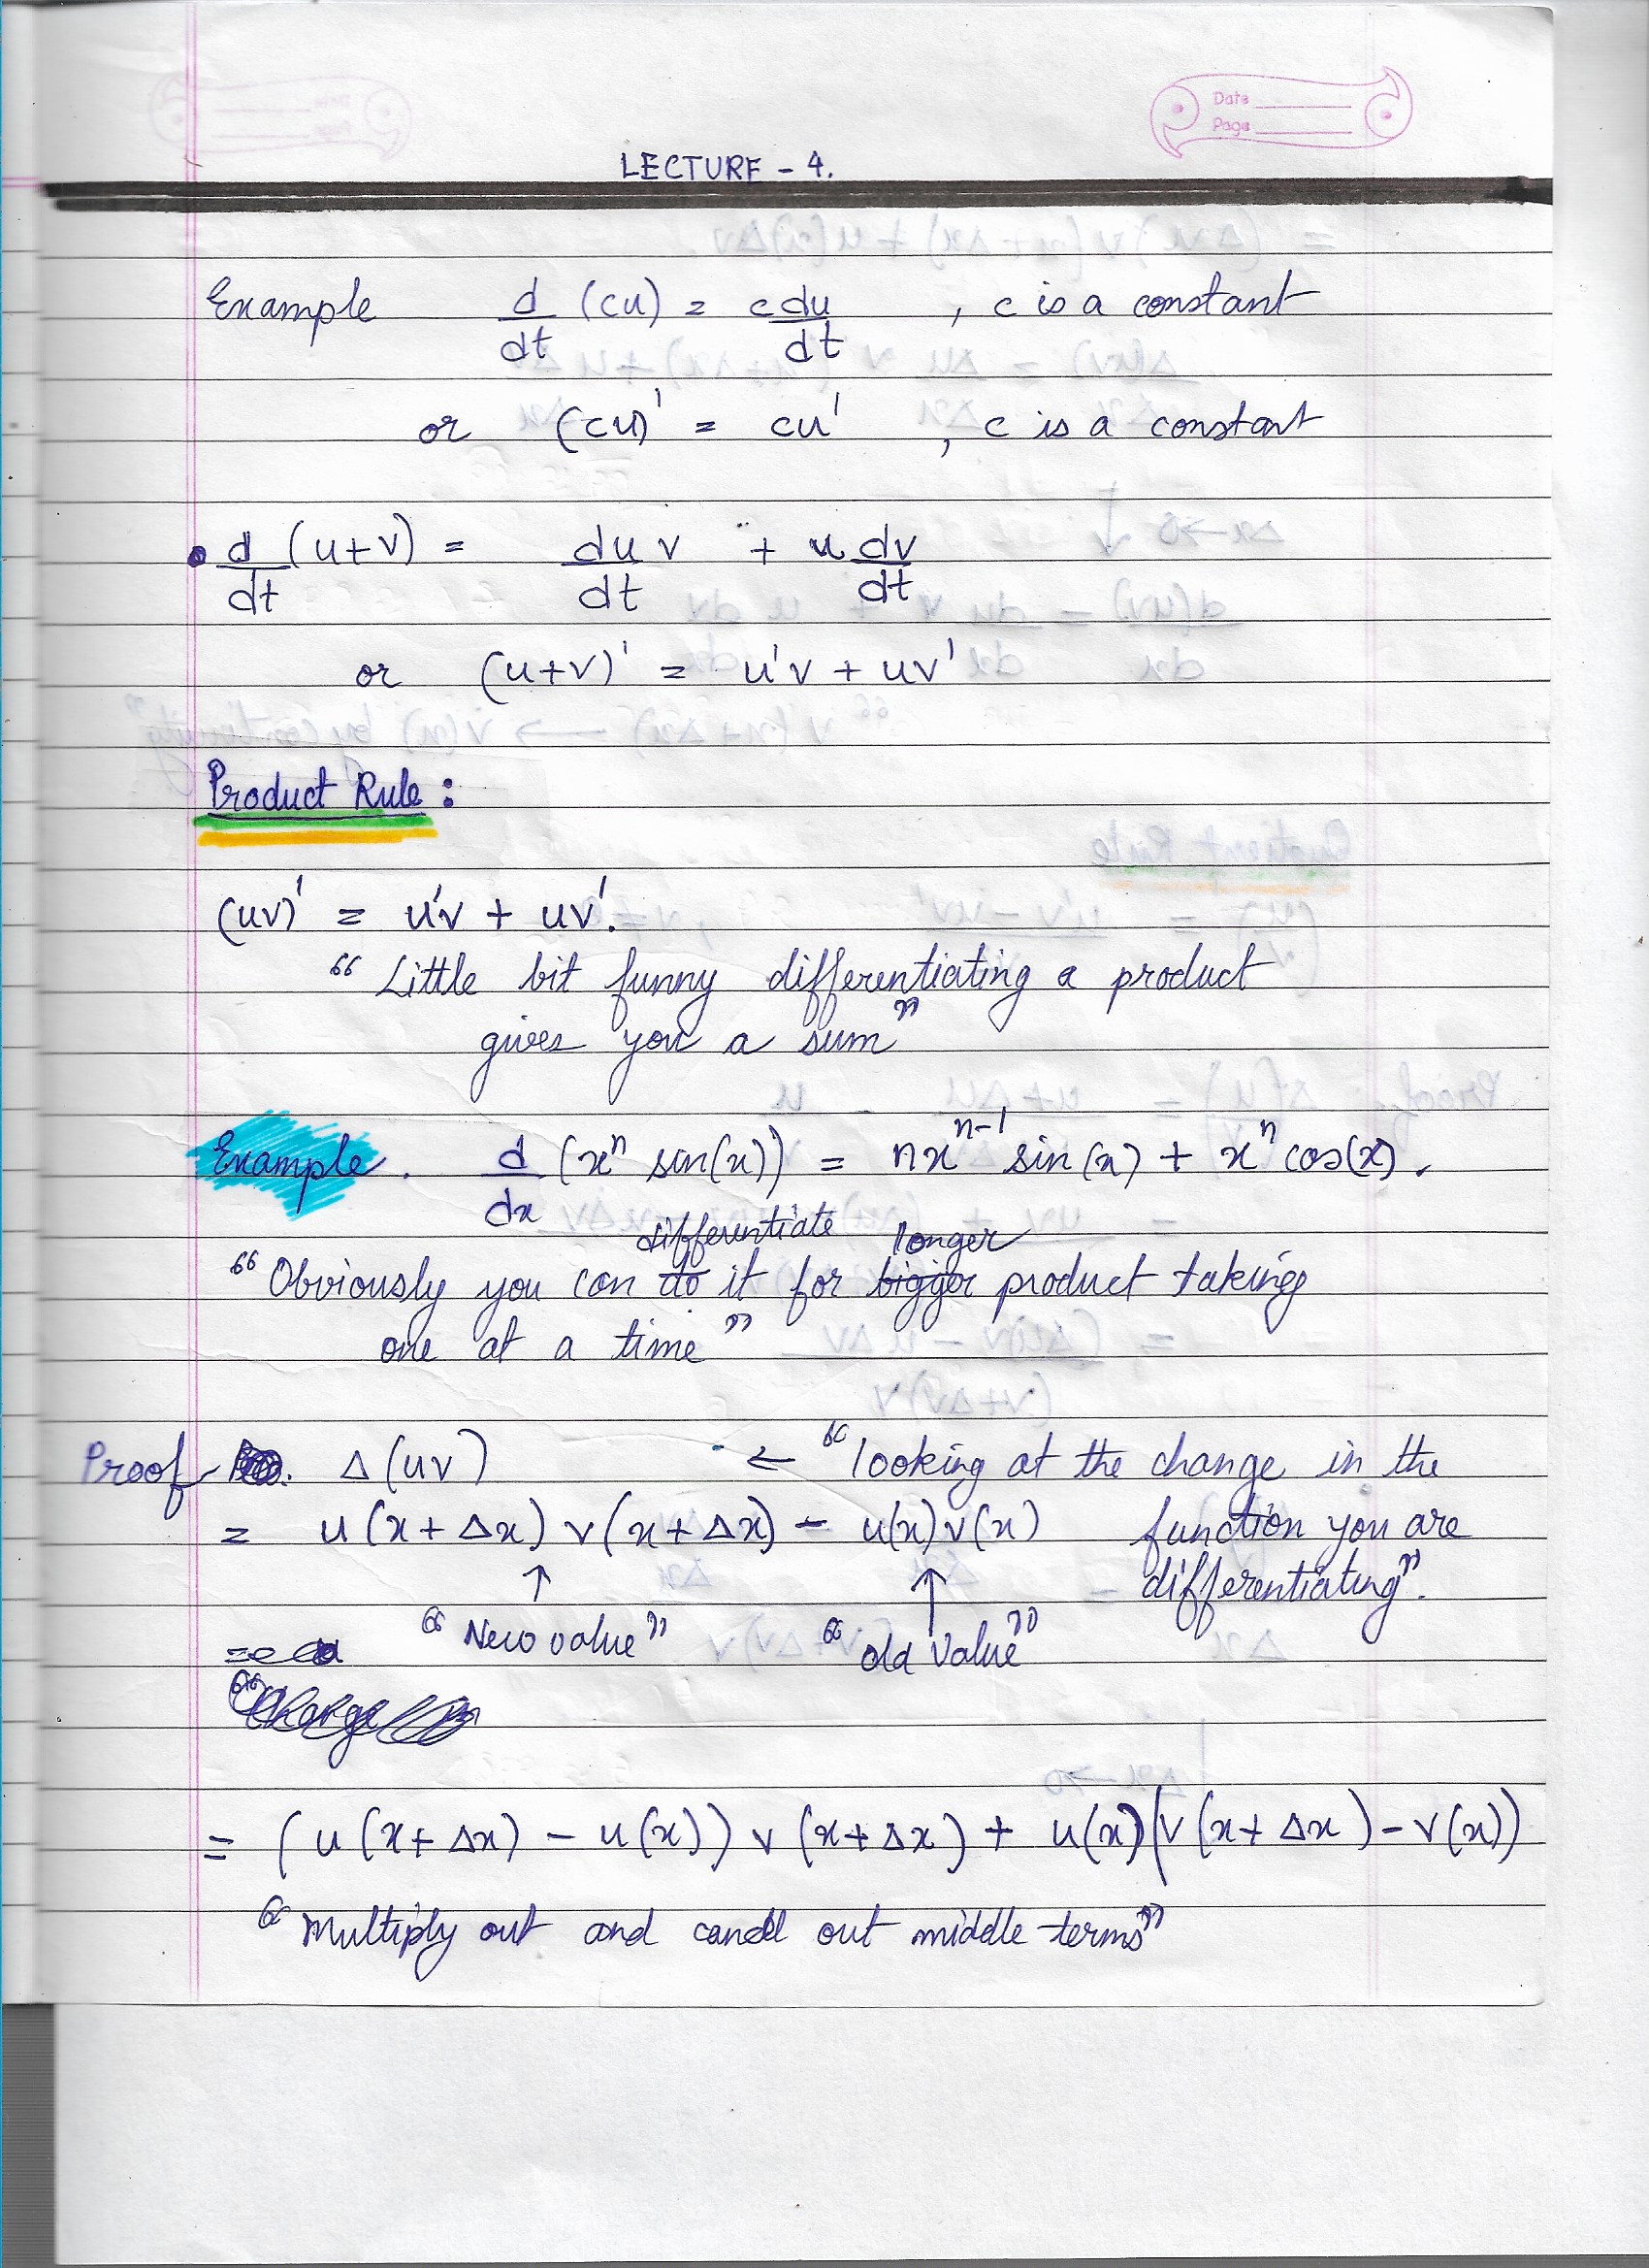 Date
Page
LECTURE - 4.
Example d/dt (cu) = c du/dt , c is a constant
or (cu)' = cu' , c is a constant
• d/dt (u+v) = du/dt v + u dv/dt
or (u+v)' = u'v + uv'
Product Rule :
(uv)' = u'v + uv'.
“ Little bit funny differentiating a product
gives you a sum ”
Example. d/dx (xⁿ sin(x)) = nxⁿ⁻¹ sin(x) + xⁿ cos(x).
differentiate longer
“ Obviously you can do it for bigger product taking
one at a time ”
Proof Δ(uv) ← “ looking at the change in the
= u(x+Δx) v(x+Δx) - u(x)v(x) function you are
↑ ↑ differentiating”.
“ New value ” “ old value ”
= (u(x+Δx) - u(x)) v(x+Δx) + u(x)(v(x+Δx) - v(x))
“ Multiply out and cancel out middle terms ”